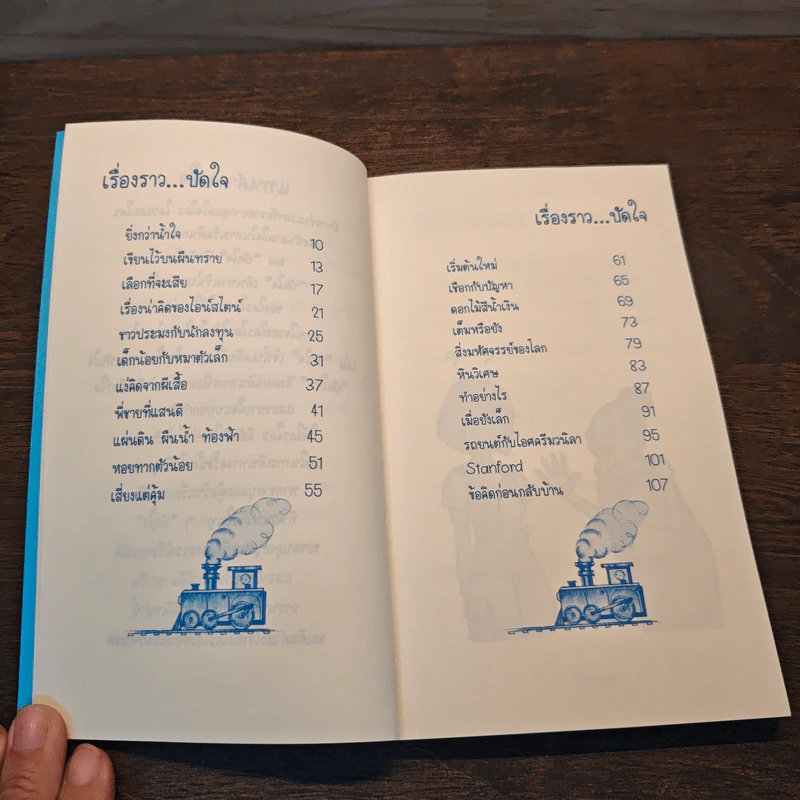 เรื่องราว...ปัดใจ
ยิ่งกว่าน้ำใจ 10
เขียนไว้บนผืนทราย 13
เลือกที่จะเสีย 17
เรื่องน่าคิดของไอน์สไตน์ 21
ชาวประมงกับนักลงทุน 25
เด็กน้อยกับหมาตัวเล็ก 31
แง่คิดจากผีเสื้อ 37
พี่ชายที่แสนดี 41
แผ่นดิน ผืนน้ำ ท้องฟ้า 45
หอยทากตัวน้อย 51
เสี่ยงแต่คุ้ม 55
เรื่องราว...ปัดใจ
เริ่มต้นใหม่ 61
เชือกกับปัญหา 65
ดอกไม้สีน้ำเงิน 69
เต็มหรือยัง 73
สิ่งมหัศจรรย์ของโลก 79
หินวิเศษ 83
ทำอย่างไร 87
เมื่อยังเล็ก 91
รถยนต์กับไอศครีมวนิลา 95
Stanford 101
ข้อคิดก่อนกลับบ้าน 107